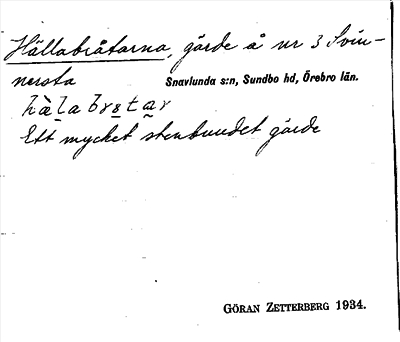 Hällabråtarna, gärde å nr 3 Svin-
nersta Snavlunda s:n, Sundbo hd, Örebro län.
Ett mycket stenbundet gärde
GÖRAN ZETTERBERG 1934.